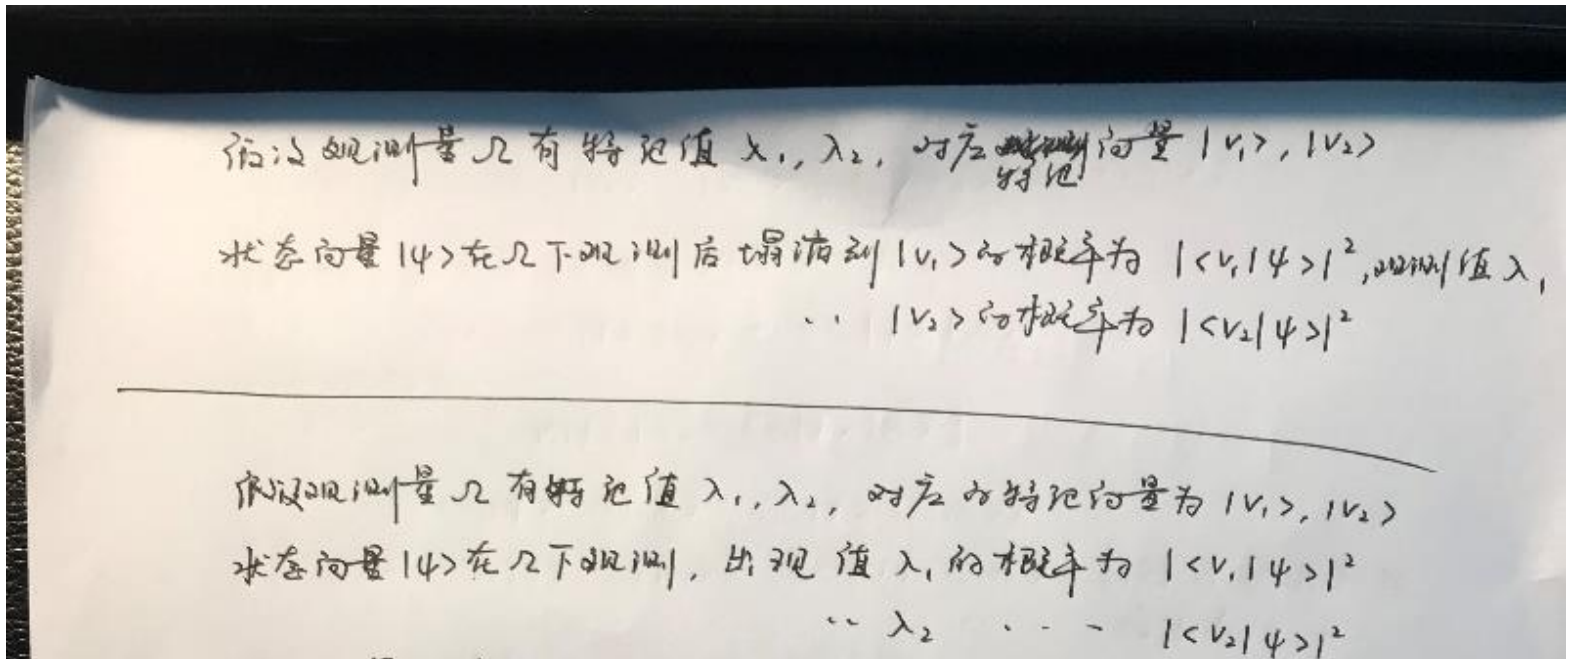 假设观测量Ω有特征值 λ₁, λ₂, 对应特征向量 |v₁>, |v₂>
状态向量|ψ>在Ω下观测后塌缩到|v₁>的概率为 |<v₁|ψ>|², 观测值λ₁
·· |v₂>的概率为 |<v₂|ψ>|²
假设观测量Ω有特征值 λ₁, λ₂, 对应的特征向量为 |v₁>, |v₂>
状态向量|ψ>在Ω下观测, 出现值λ₁的概率为 |<v₁|ψ>|²
·· λ₂ · · - |<v₂|ψ>|²